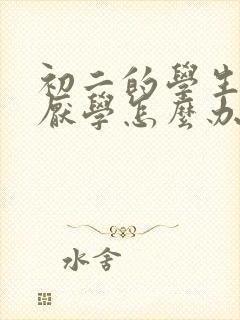 初二的學生
厭學怎麼办
水舍